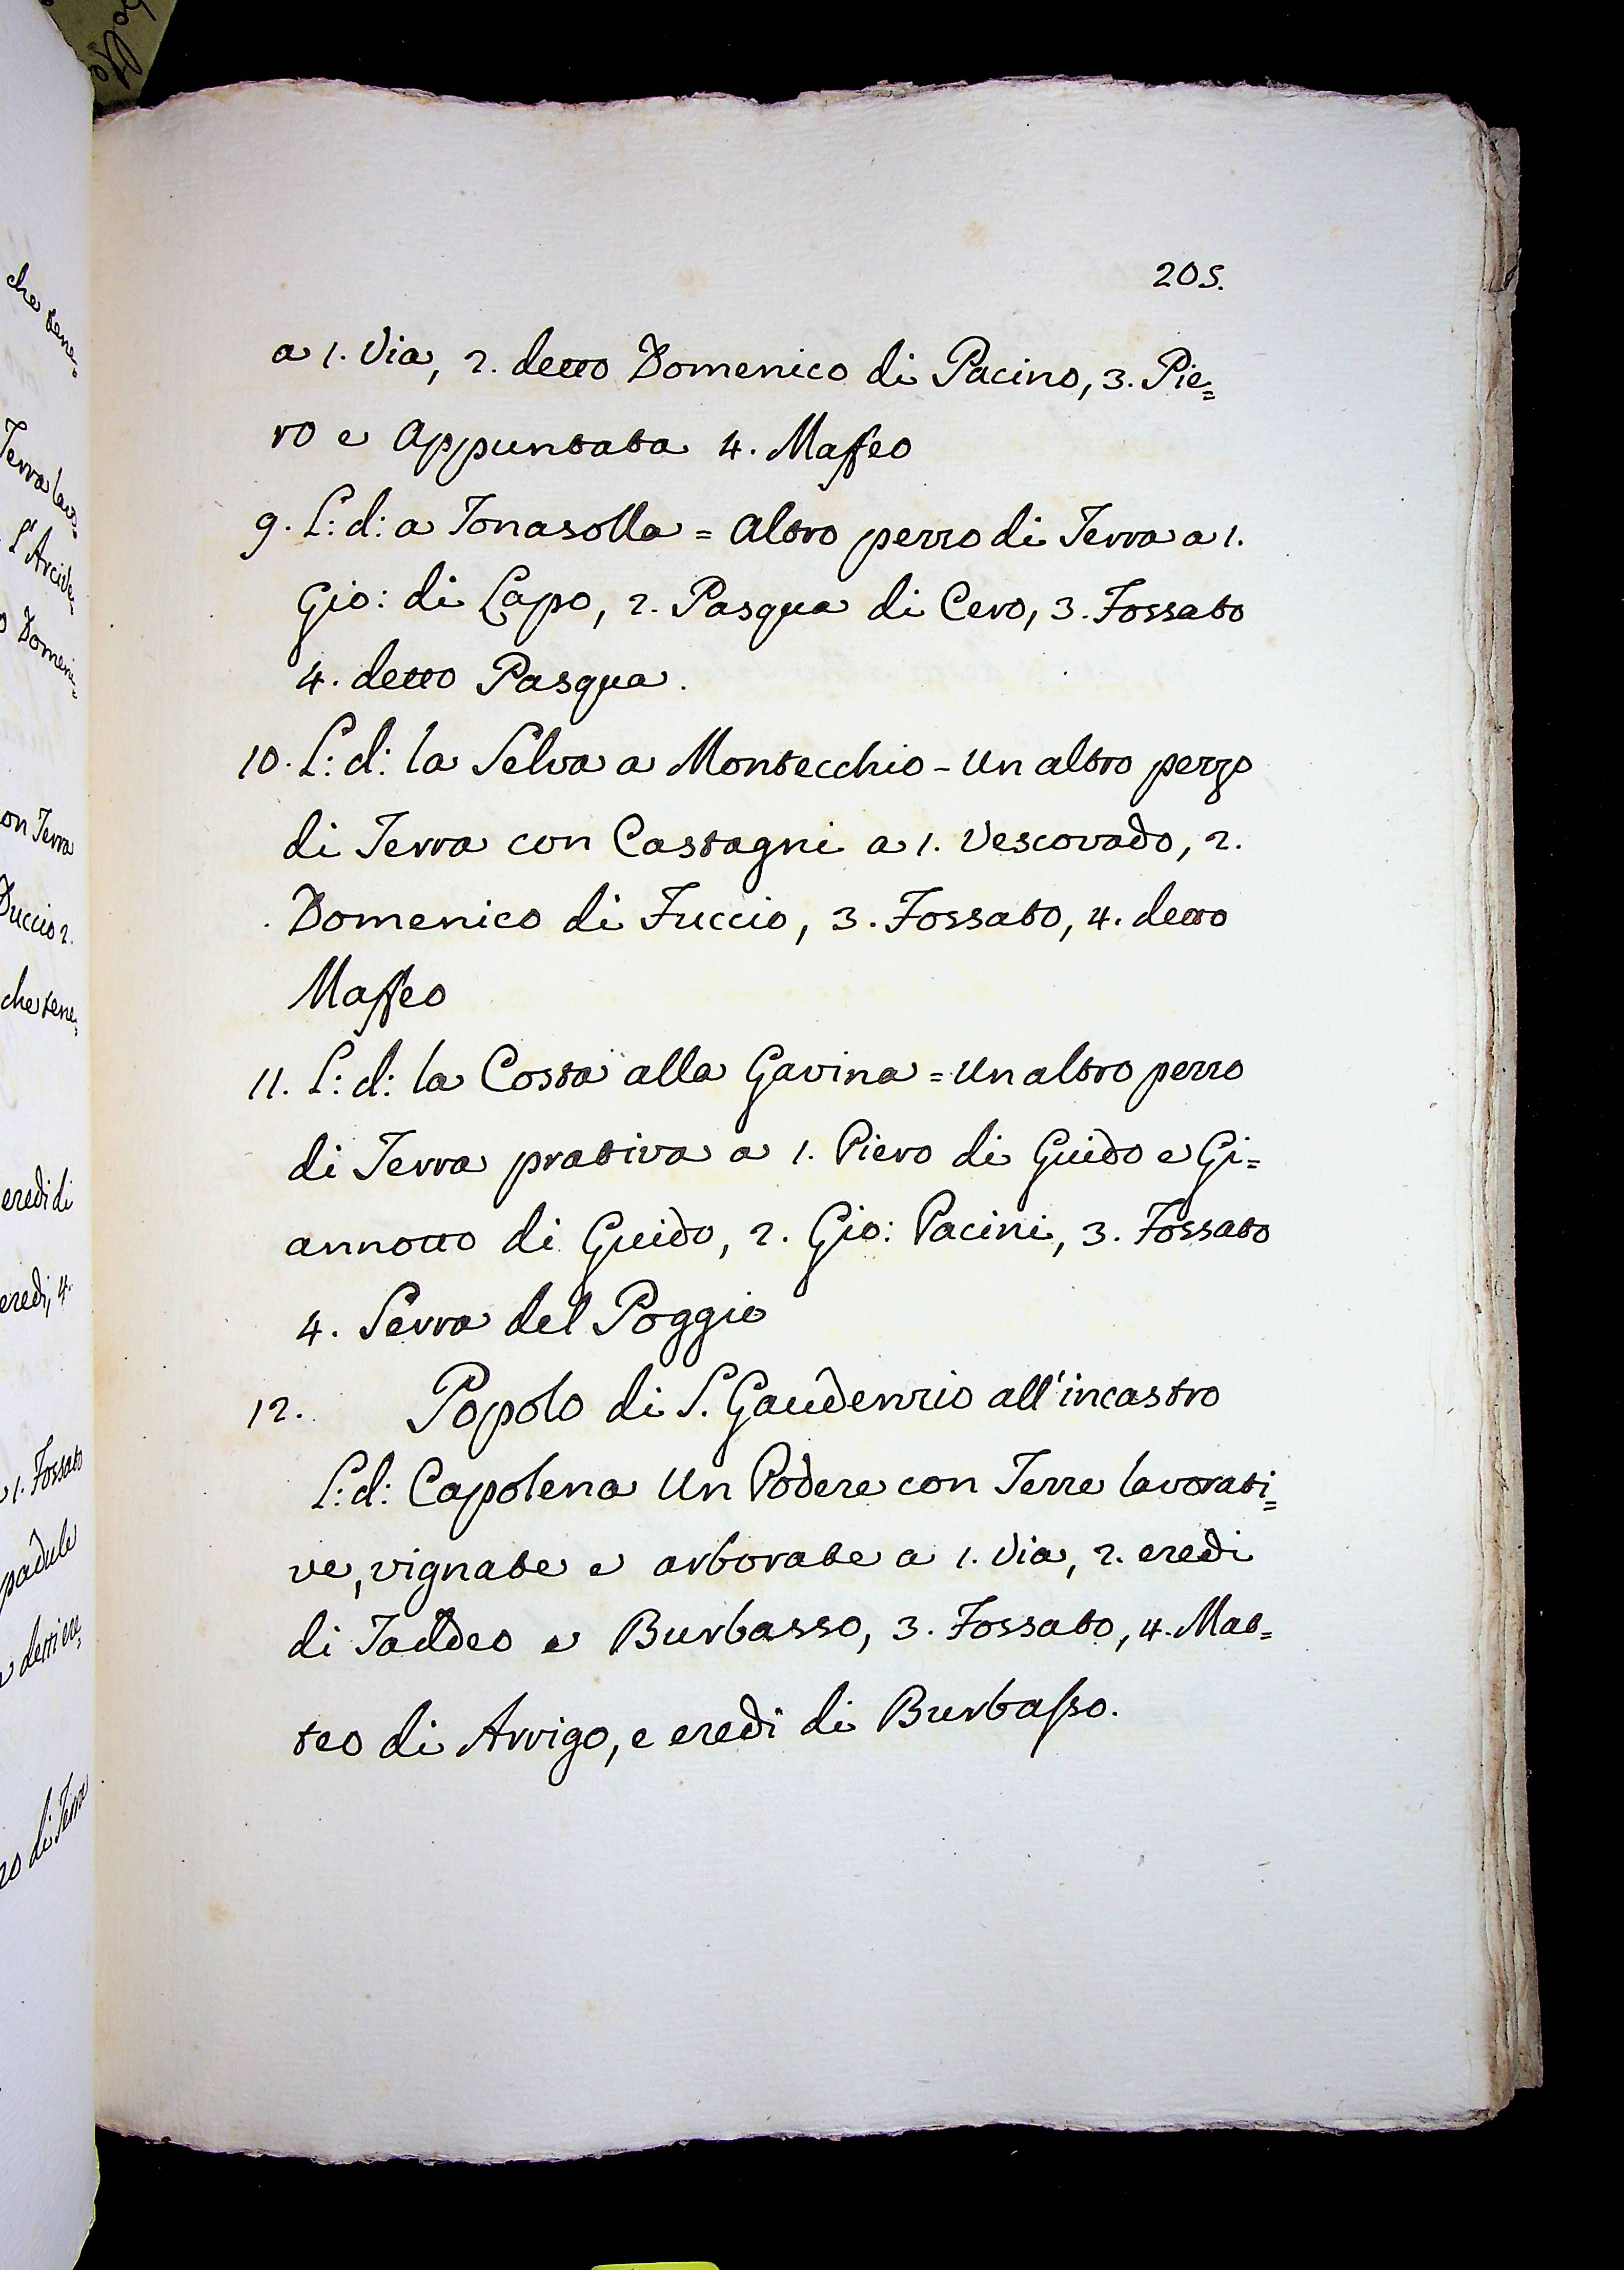 205.
a 1. Via, 2. detto Domenico di Pacino, 3. Pie=
ro e Appuntata 4. Maffeo
9. L: d: a Fonasolla = Altro pezzo di Terra a 1.
Gio: di Lapo, 2. Pasqua di Cevo, 3. Fossato
4. detto Pasqua.
10. L: d: la Selva a Montecchio - Un altro pezzo
di Terra con Castagni a 1. Vescovado, 2.
Domenico di Fuccio, 3. Fossato, 4. detto
Maffeo
11. L: d: la Costa alla Gavina = Un altro pezzo
di Terra prativa a 1. Piero di Guido e Gi=
annotto di Guido, 2. Gio: Pacini, 3. Fossato
4. Serra del Poggio
12. Popolo di S. Gaudenzio all'incastro
L: d: Capolena Un Podere con Terre lavorati=
ve, vignate e arborate a 1. Via, 2. eredi
di Taddeo e Burbasso, 3. Fossato, 4. Mat=
teo di Arrigo, e eredi di Burbasso.
che tene=
Terra lavo=
L'Arcive=
Domeni=
on Terra
Duccio 2.
che tene=
eredi di
eredi, 4.
1. Fossato
padule
di Terra